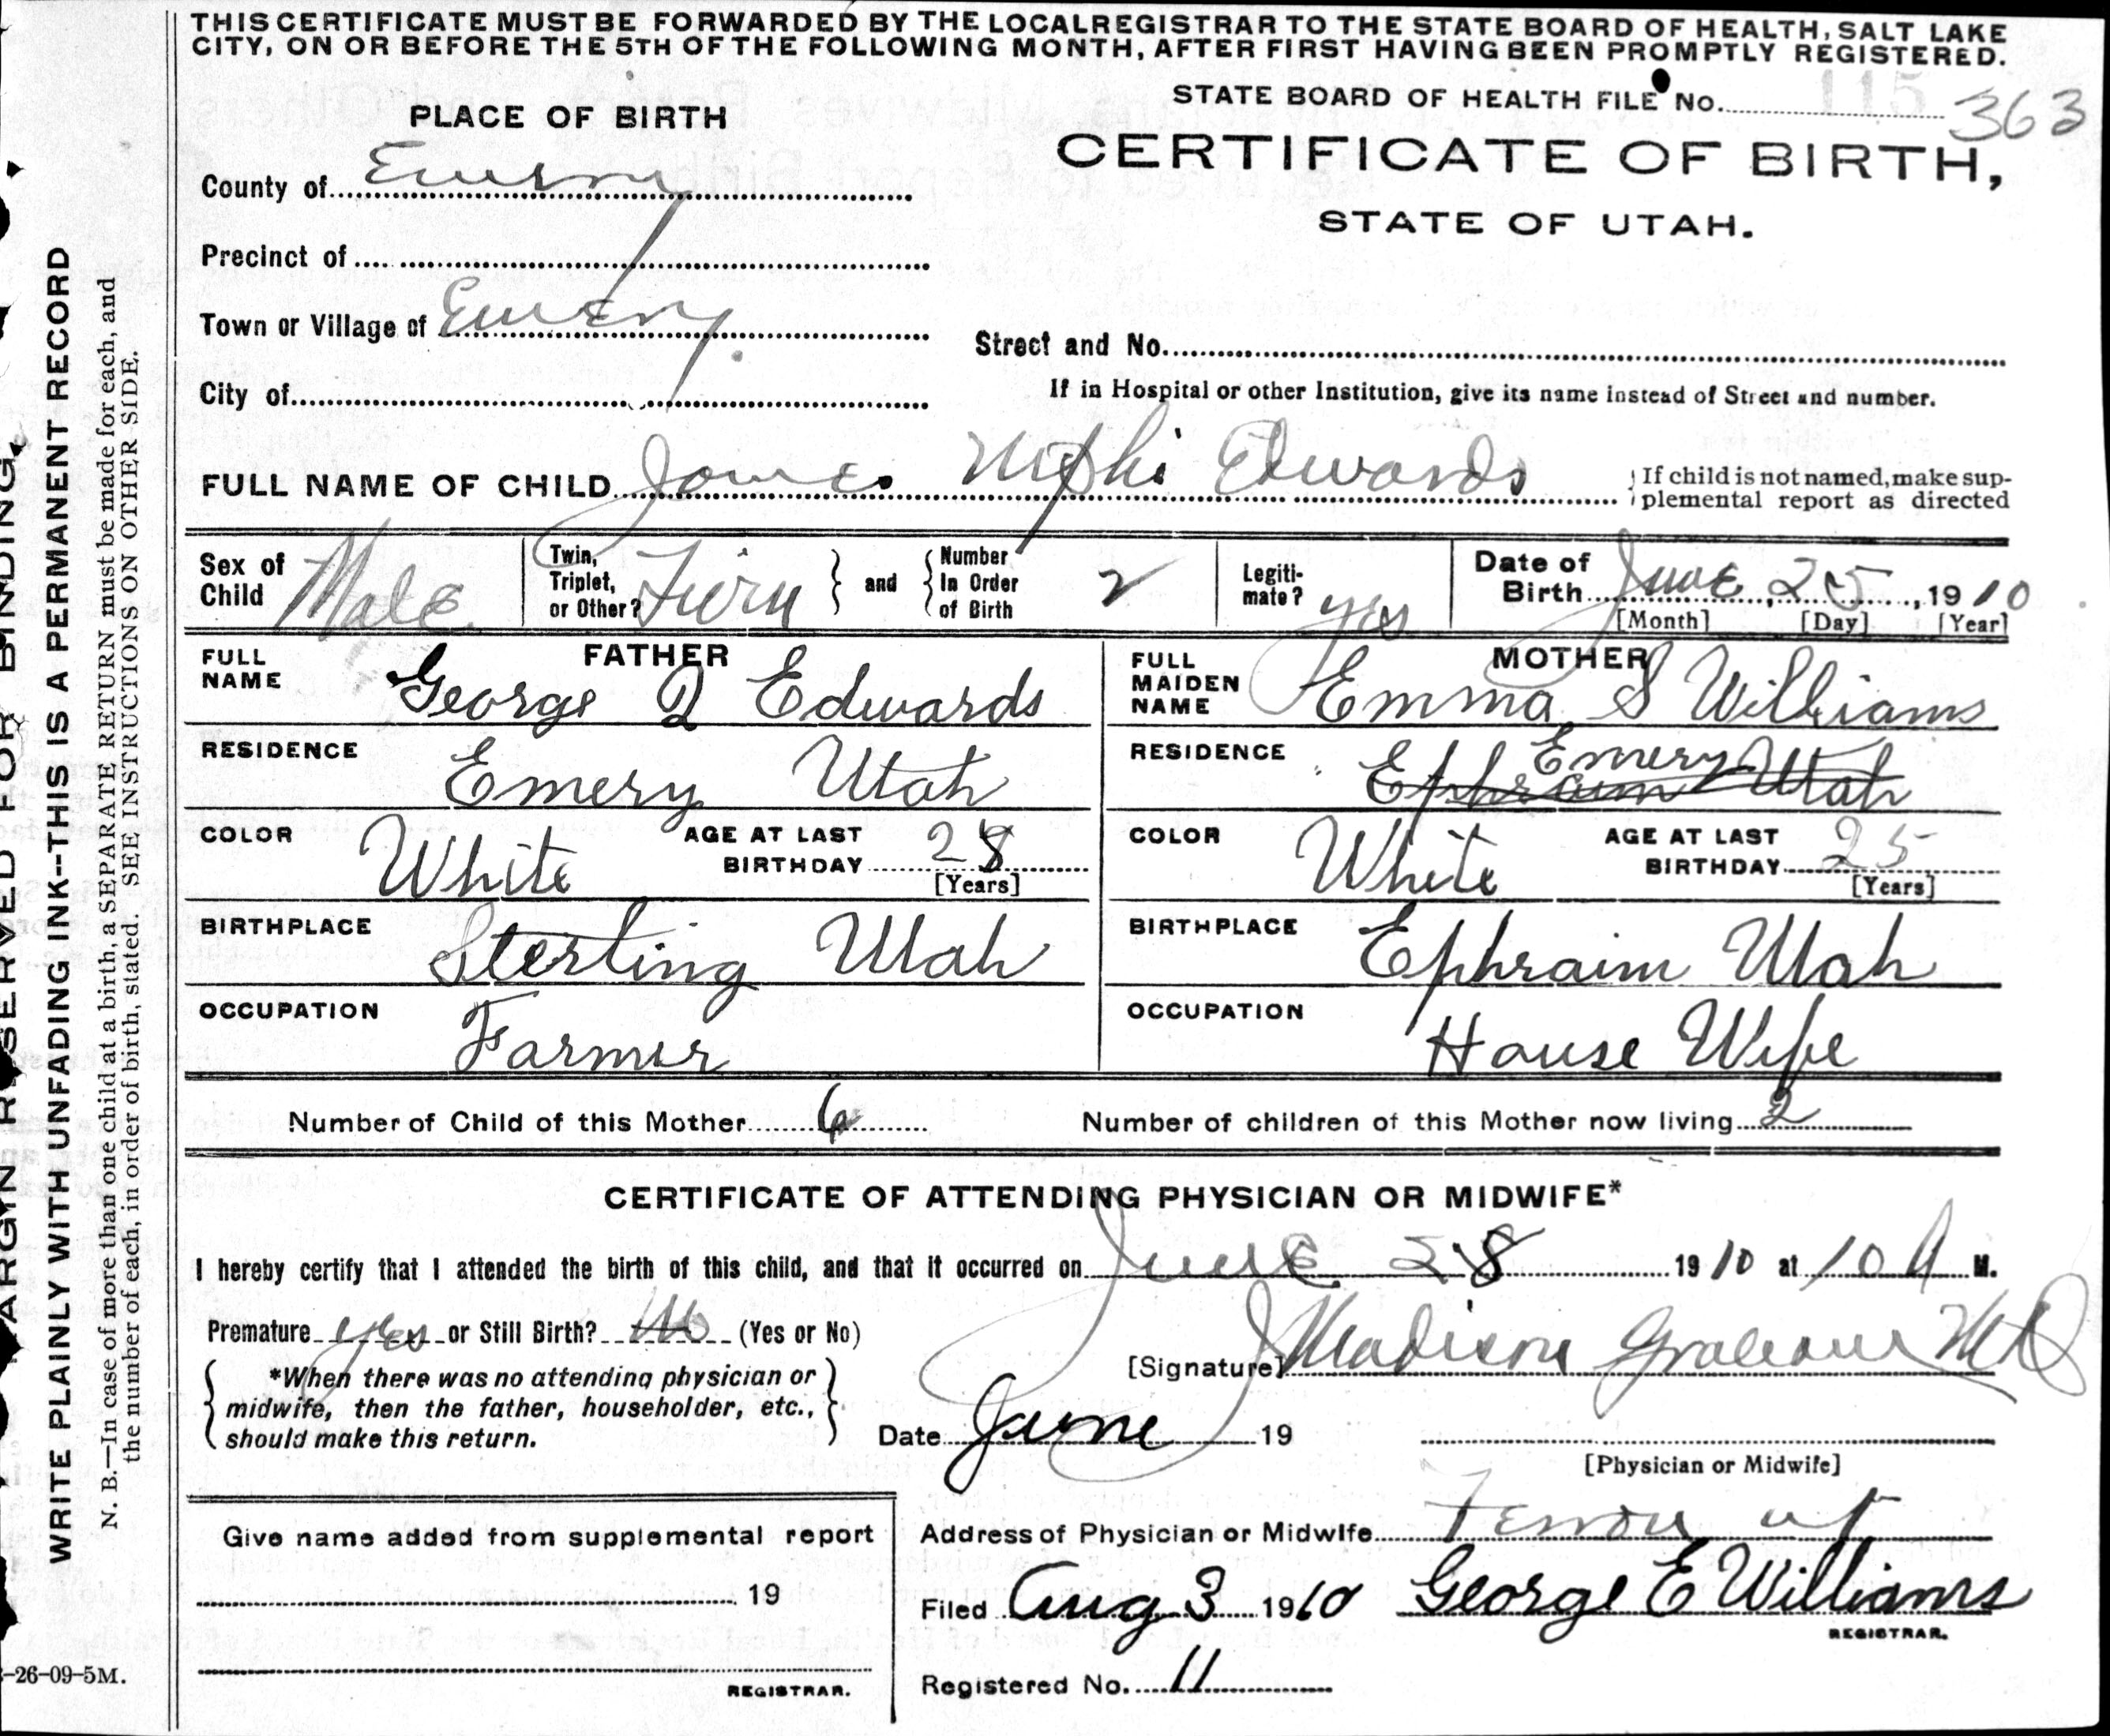 THIS CERTIFICATE MUST BE FORWARDED BY THE LOCAL REGISTRAR TO THE STATE BOARD OF HEALTH, SALT LAKE
CITY, ON OR BEFORE THE 5TH OF THE FOLLOWING MONTH, AFTER FIRST HAVING BEEN PROMPTLY REGISTERED.
STATE BOARD OF HEALTH FILE No. 115 363
PLACE OF BIRTH
CERTIFICATE OF BIRTH,
STATE OF UTAH.
County of Emery
Precinct of
Town or Village of Emery.
Street and No.
City of
If in Hospital or other Institution, give its name instead of Street and number.
FULL NAME OF CHILD James Nephi Edwards
If child is not named, make sup-
plemental report as directed
Sex of Child Male
Twin, Triplet, or Other? Twin
and Number In Order of Birth 2
Legiti-mate? yes
Date of Birth June, 25, 1910
[Month] [Day] [Year]
FATHER
FULL NAME George Q Edwards
MOTHER
FULL MAIDEN NAME Emma S Williams
RESIDENCE Emery Utah
RESIDENCE Emery Ephraim Utah
COLOR White AGE AT LAST BIRTHDAY 28 [Years]
COLOR White AGE AT LAST BIRTHDAY 25 [Years]
BIRTHPLACE Sterling Utah
BIRTHPLACE Ephraim Utah
OCCUPATION Farmer
OCCUPATION House Wife
Number of Child of this Mother 6
Number of children of this Mother now living 2
CERTIFICATE OF ATTENDING PHYSICIAN OR MIDWIFE*
I hereby certify that I attended the birth of this child, and that it occurred on June 28 1910 at 10 A M.
Premature yes or Still Birth? No (Yes or No)
[Signature] Madison Graham MD
*When there was no attending physician or
midwife, then the father, householder, etc.,
should make this return.
Date June 19
[Physician or Midwife]
Give name added from supplemental report
19
REGISTRAR.
Address of Physician or Midwife Ferron ut
Filed Aug 3 1910 George E Williams
REGISTRAR.
Registered No. 11
MARGIN RESERVED FOR BINDING.
WRITE PLAINLY WITH UNFADING INK--THIS IS A PERMANENT RECORD
N. B.—In case of more than one child at a birth, a SEPARATE RETURN must be made for each, and
the number of each, in order of birth, stated. SEE INSTRUCTIONS ON OTHER SIDE.
-26-09-5M.